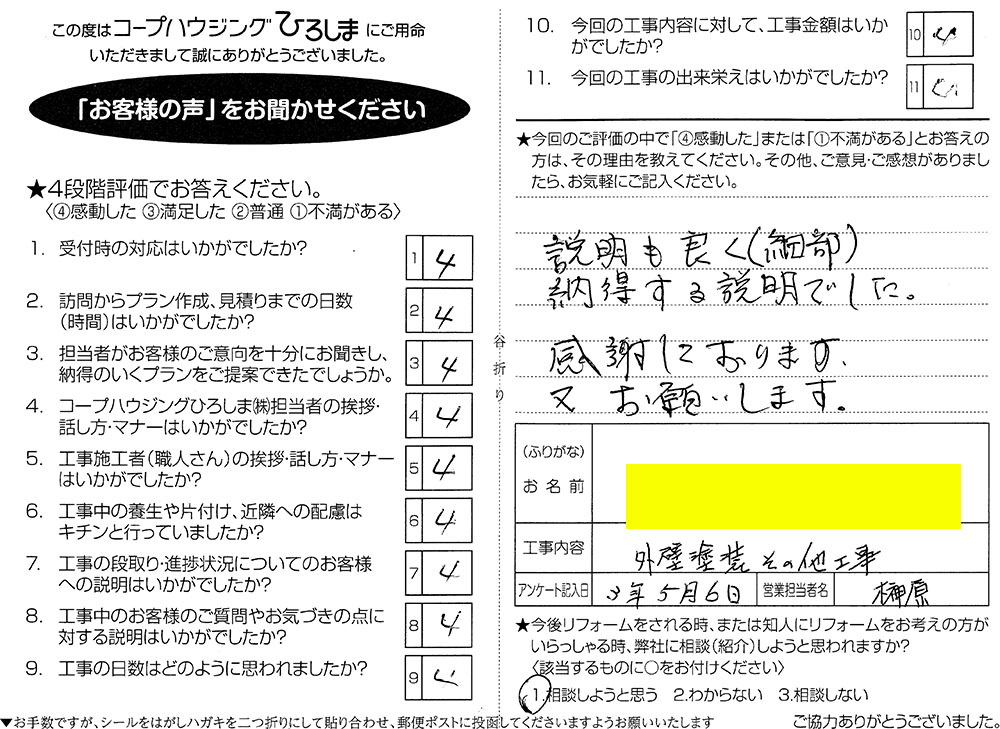 この度はコープハウジングひろしまにご用命
いただきまして誠にありがとうございました。
「お客様の声」をお聞かせください
★4段階評価でお答えください。
〈④感動した ③満足した ②普通 ①不満がある〉
1. 受付時の対応はいかがでしたか?
1 4
2. 訪問からプラン作成、見積りまでの日数
(時間)はいかがでしたか?
2 4
3. 担当者がお客様のご意向を十分にお聞きし、
納得のいくプランをご提案できたでしょうか。
3 4
4. コープハウジングひろしま㈱担当者の挨拶・
話し方・マナーはいかがでしたか?
4 4
5. 工事施工者(職人さん)の挨拶・話し方・マナー
はいかがでしたか?
5 4
6. 工事中の養生や片付け、近隣への配慮は
キチンと行っていましたか?
6 4
7. 工事の段取り・進捗状況についてのお客様
への説明はいかがでしたか?
7 4
8. 工事中のお客様のご質問やお気づきの点に
対する説明はいかがでしたか?
8 4
9. 工事の日数はどのように思われましたか?
9
▼お手数ですが、シールをはがしハガキを二つ折りにして貼り合わせ、郵便ポストに投函してくださいますようお願いいたします
谷折り
10. 今回の工事内容に対して、工事金額はいか
がでしたか?
10 4
11. 今回の工事の出来栄えはいかがでしたか?
11
★今回のご評価の中で「④感動した」または「①不満がある」とお答えの
方は、その理由を教えてください。その他、ご意見・ご感想がありまし
たら、お気軽にご記入ください。
説明も良く(細部)
納得する説明でした。
感謝しております.
又お願いします.
(ふりがな)
お名前
工事内容 外壁塗装その他工事
アンケート記入日 3年5月6日 営業担当者名 榊原
★今後リフォームをされる時、または知人にリフォームをお考えの方が
いらっしゃる時、弊社に相談(紹介)しようと思われますか?
〈該当するものに○をお付けください〉
1.相談しようと思う 2.わからない 3.相談しない
ご協力ありがとうございました。